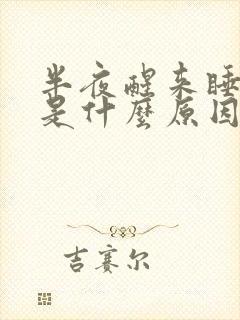 半夜醒来睡
是什麼原因
吉赛尔